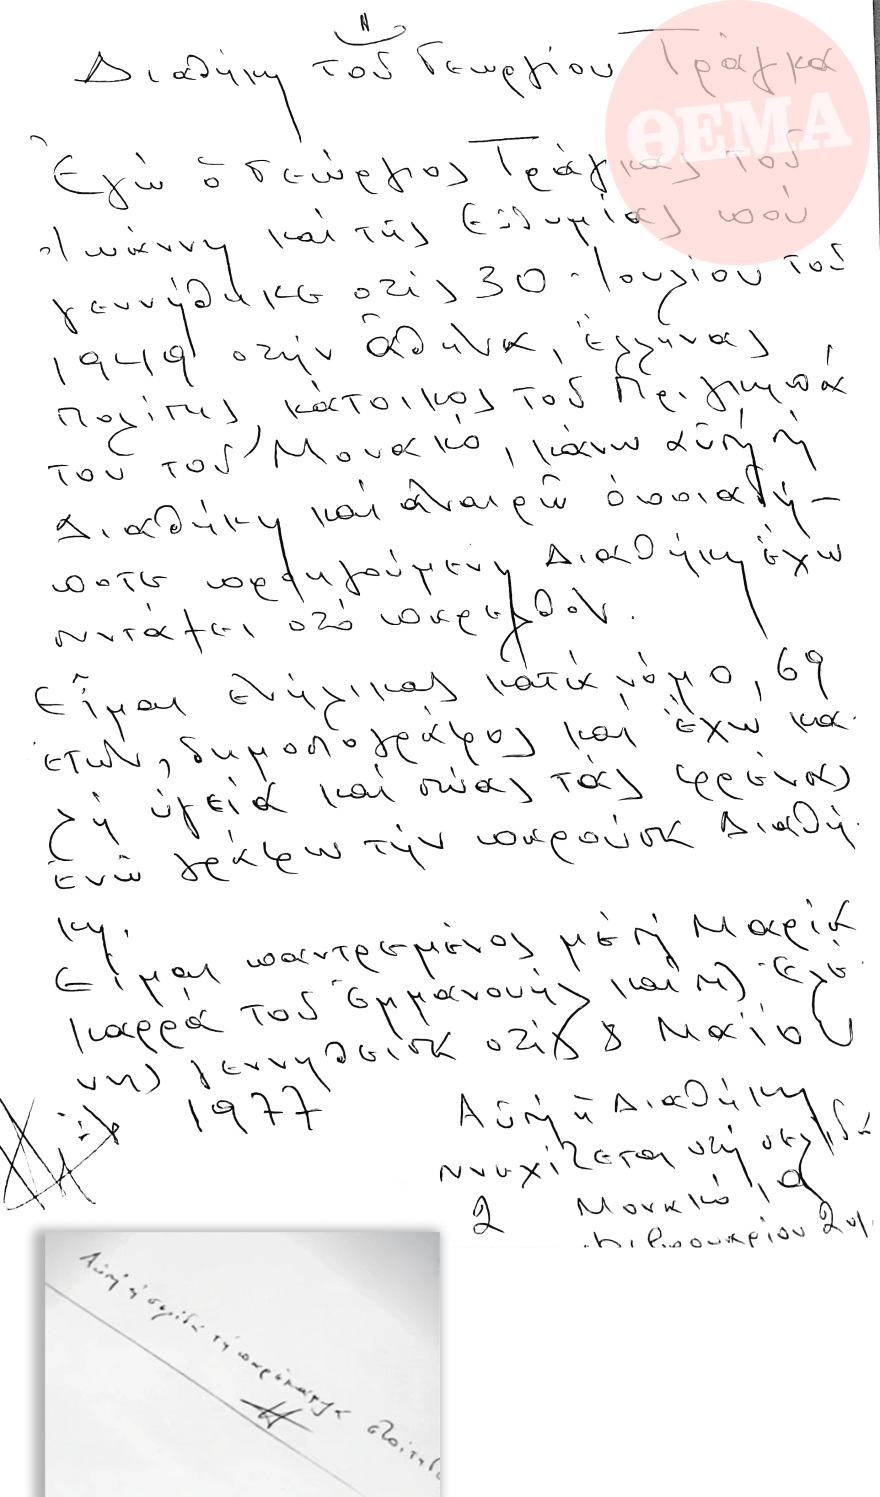 Διαθήκη τοῦ Γεωργίου Τράγκα
ΘΕΜΑ
Ἐγώ ὁ Γεώργιος Τράγκας τοῦ
Ἰωάννη καί τῆς Εὐθυμίας πού
γεννήθηκε στίς 30 Ἰουλίου τοῦ
1949 στήν Ἀθήνα, Ἕλληνας
πολίτης, κάτοικος τοῦ Πριγκηπά
του τοῦ Μονακό, κάνω αὐτή τή
Διαθήκη καί ἀναιρῶ ὁποιαδή-
ποτε προηγούμενη Διαθήκη ἔχω
συντάξει στό παρελθόν.
Εἶμαι ἐνήλικας κατά νόμο, 69
ἐτῶν, δημοσιογράφος καί ἔχω κα
λή ὑγεία καί σώας τάς φρένας
ἐνῶ γράφω τήν παροῦσα Διαθή
κη.
Εἶμαι παντρεμένος μέ τή Μαρία
Καρρά τοῦ Ἐμμανουήλ καί τῆς Ἑλέ
νης γεννηθεῖσα στίς 8 Μαΐου
1977
Αὐτή ἡ Διαθήκη
συνεχίζεται στή σελίδα
2 Μονακό,
Αὐτή ἡ σελίδα